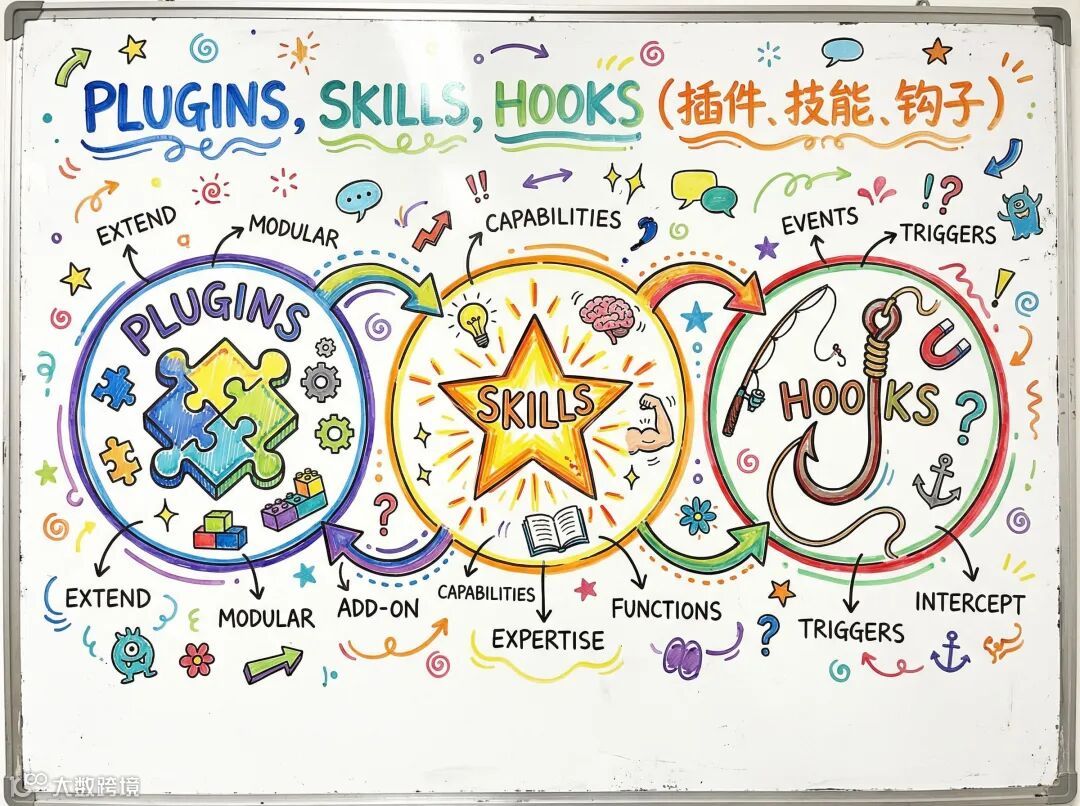 PLUGINS, SKILLS, HOOKS (插件、技能、钩子)
EXTEND
MODULAR
CAPABILITIES
EVENTS
TRIGGERS
PLUGINS
SKILLS
HOOKS
EXTEND
MODULAR
ADD-ON
CAPABILITIES
EXPERTISE
FUNCTIONS
TRIGGERS
INTERCEPT
大数跨境